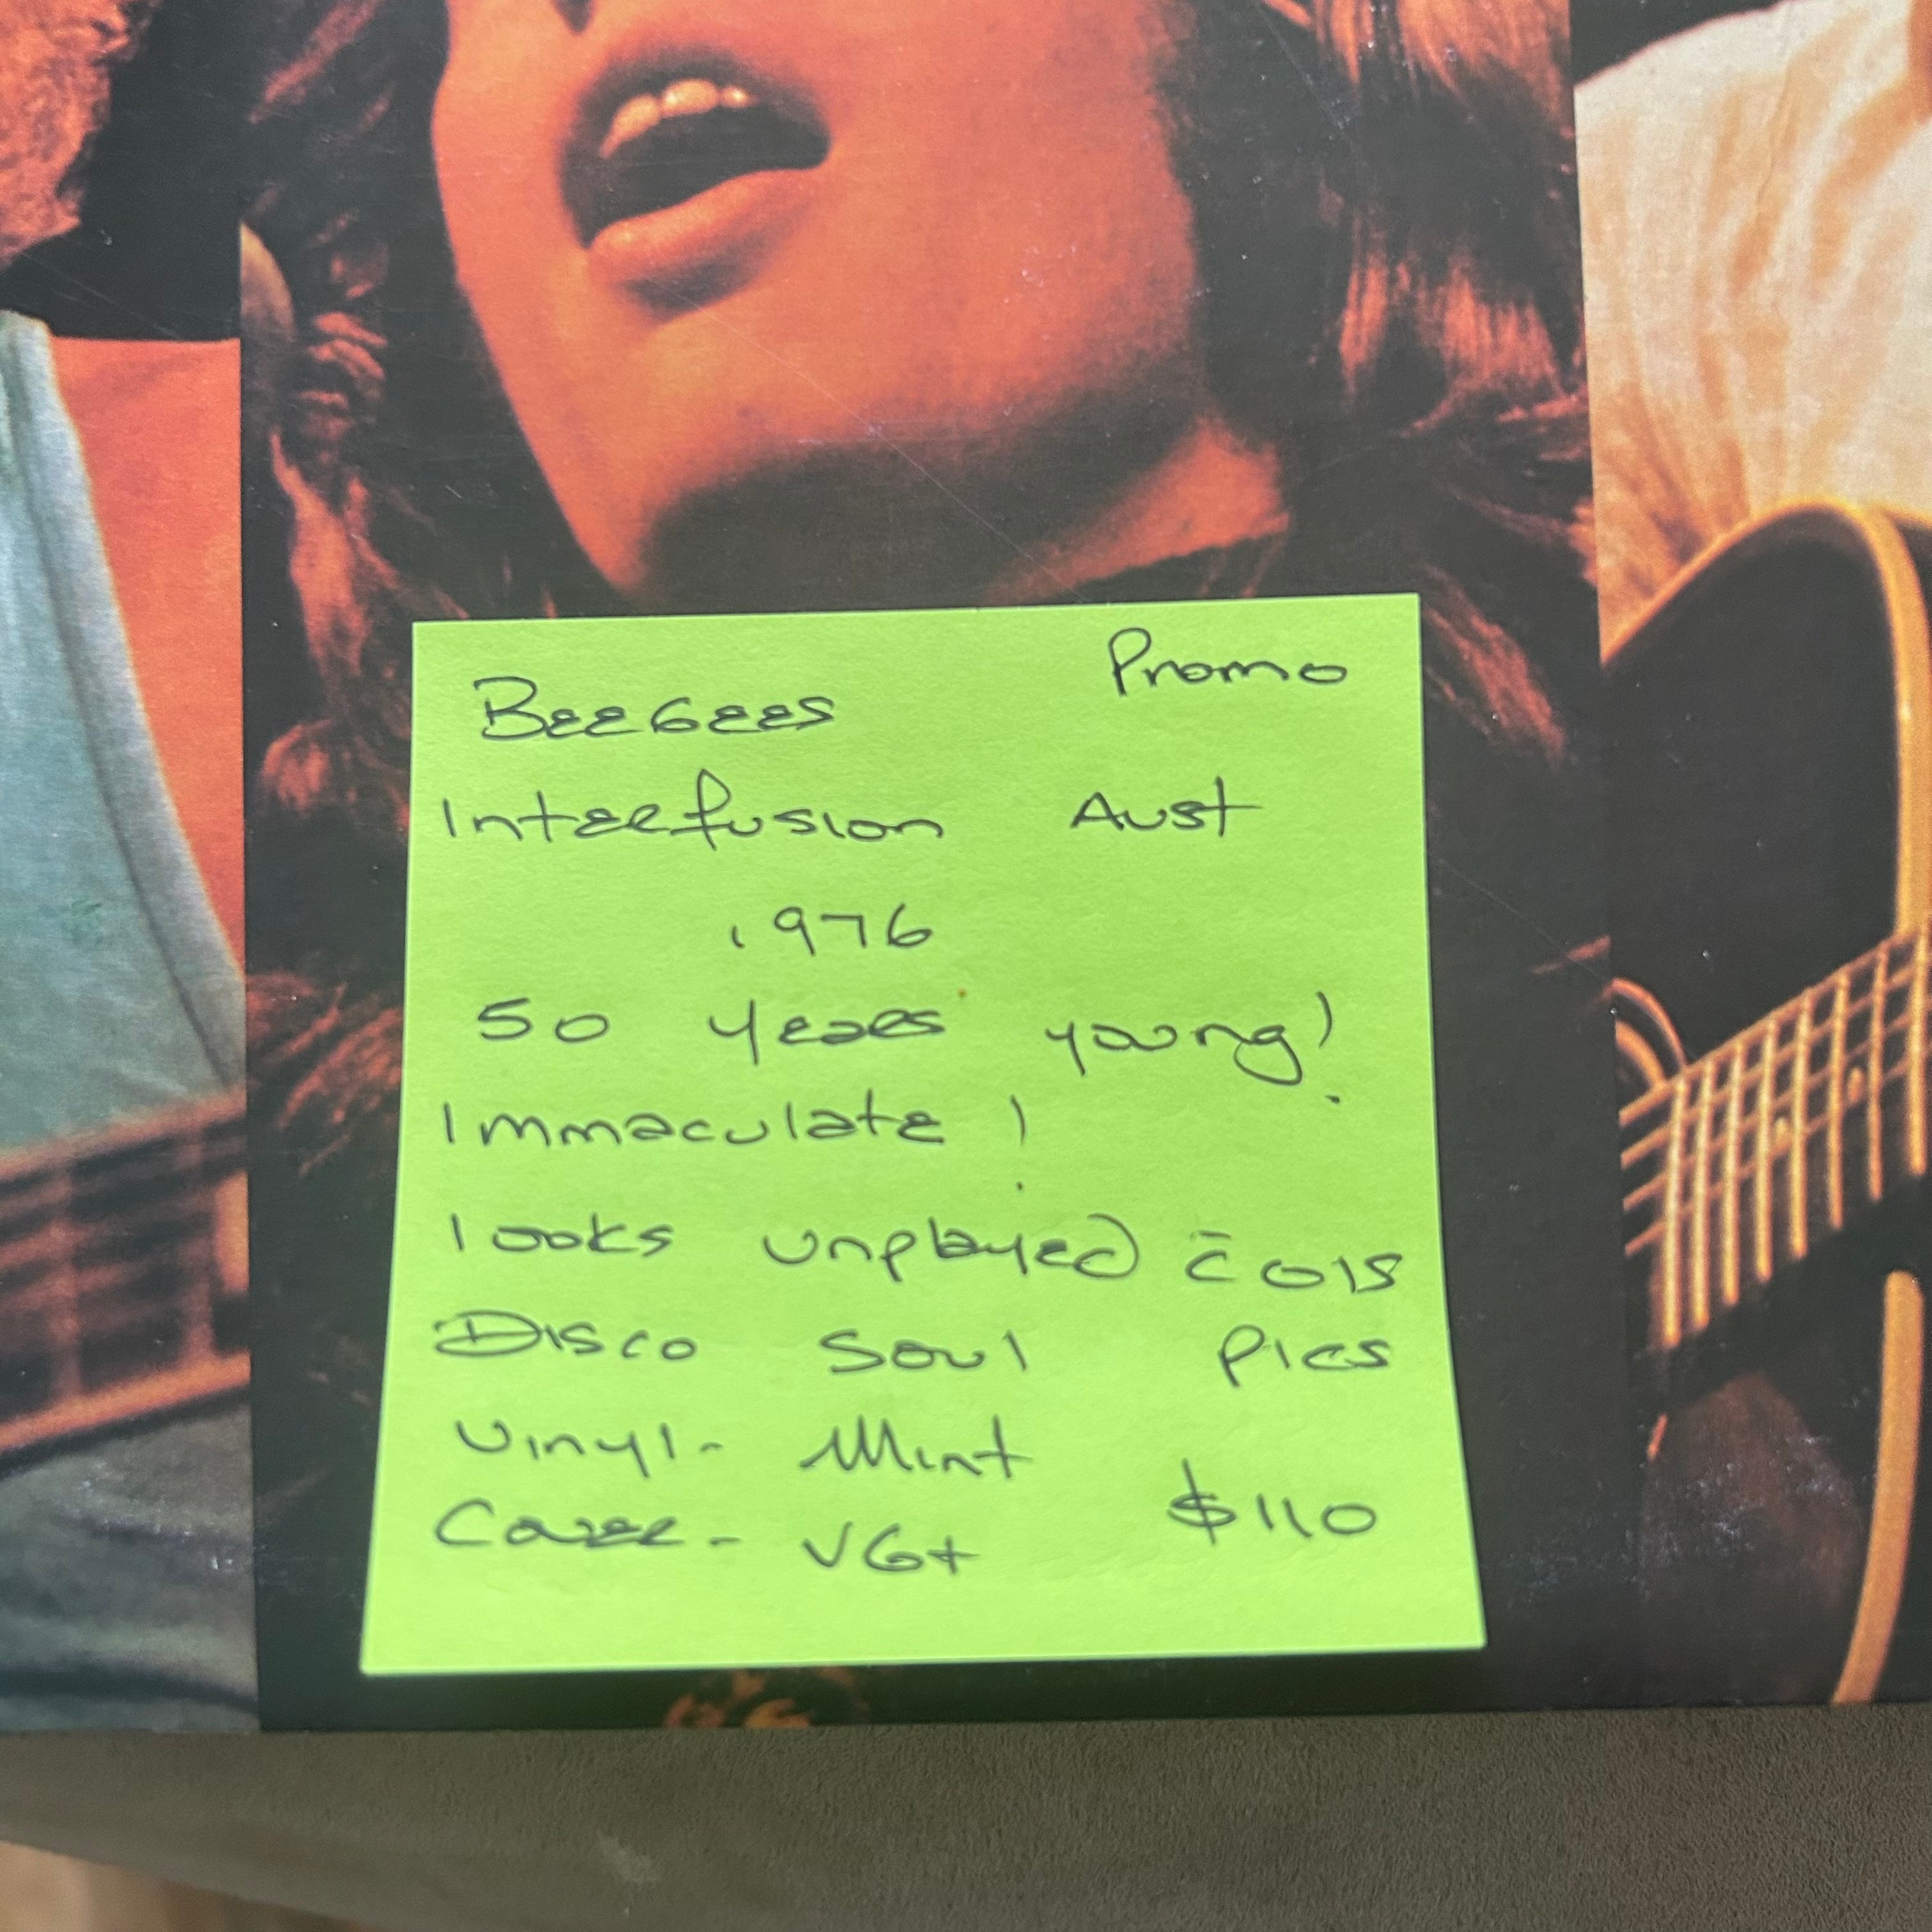 Promo
BEEGEES
Interfusion Aust
1976
50 years young!
Immaculate!
looks unplayed c̄ OIS
Disco Soul Pics
Vinyl- Mint
Cover- VG+ $110